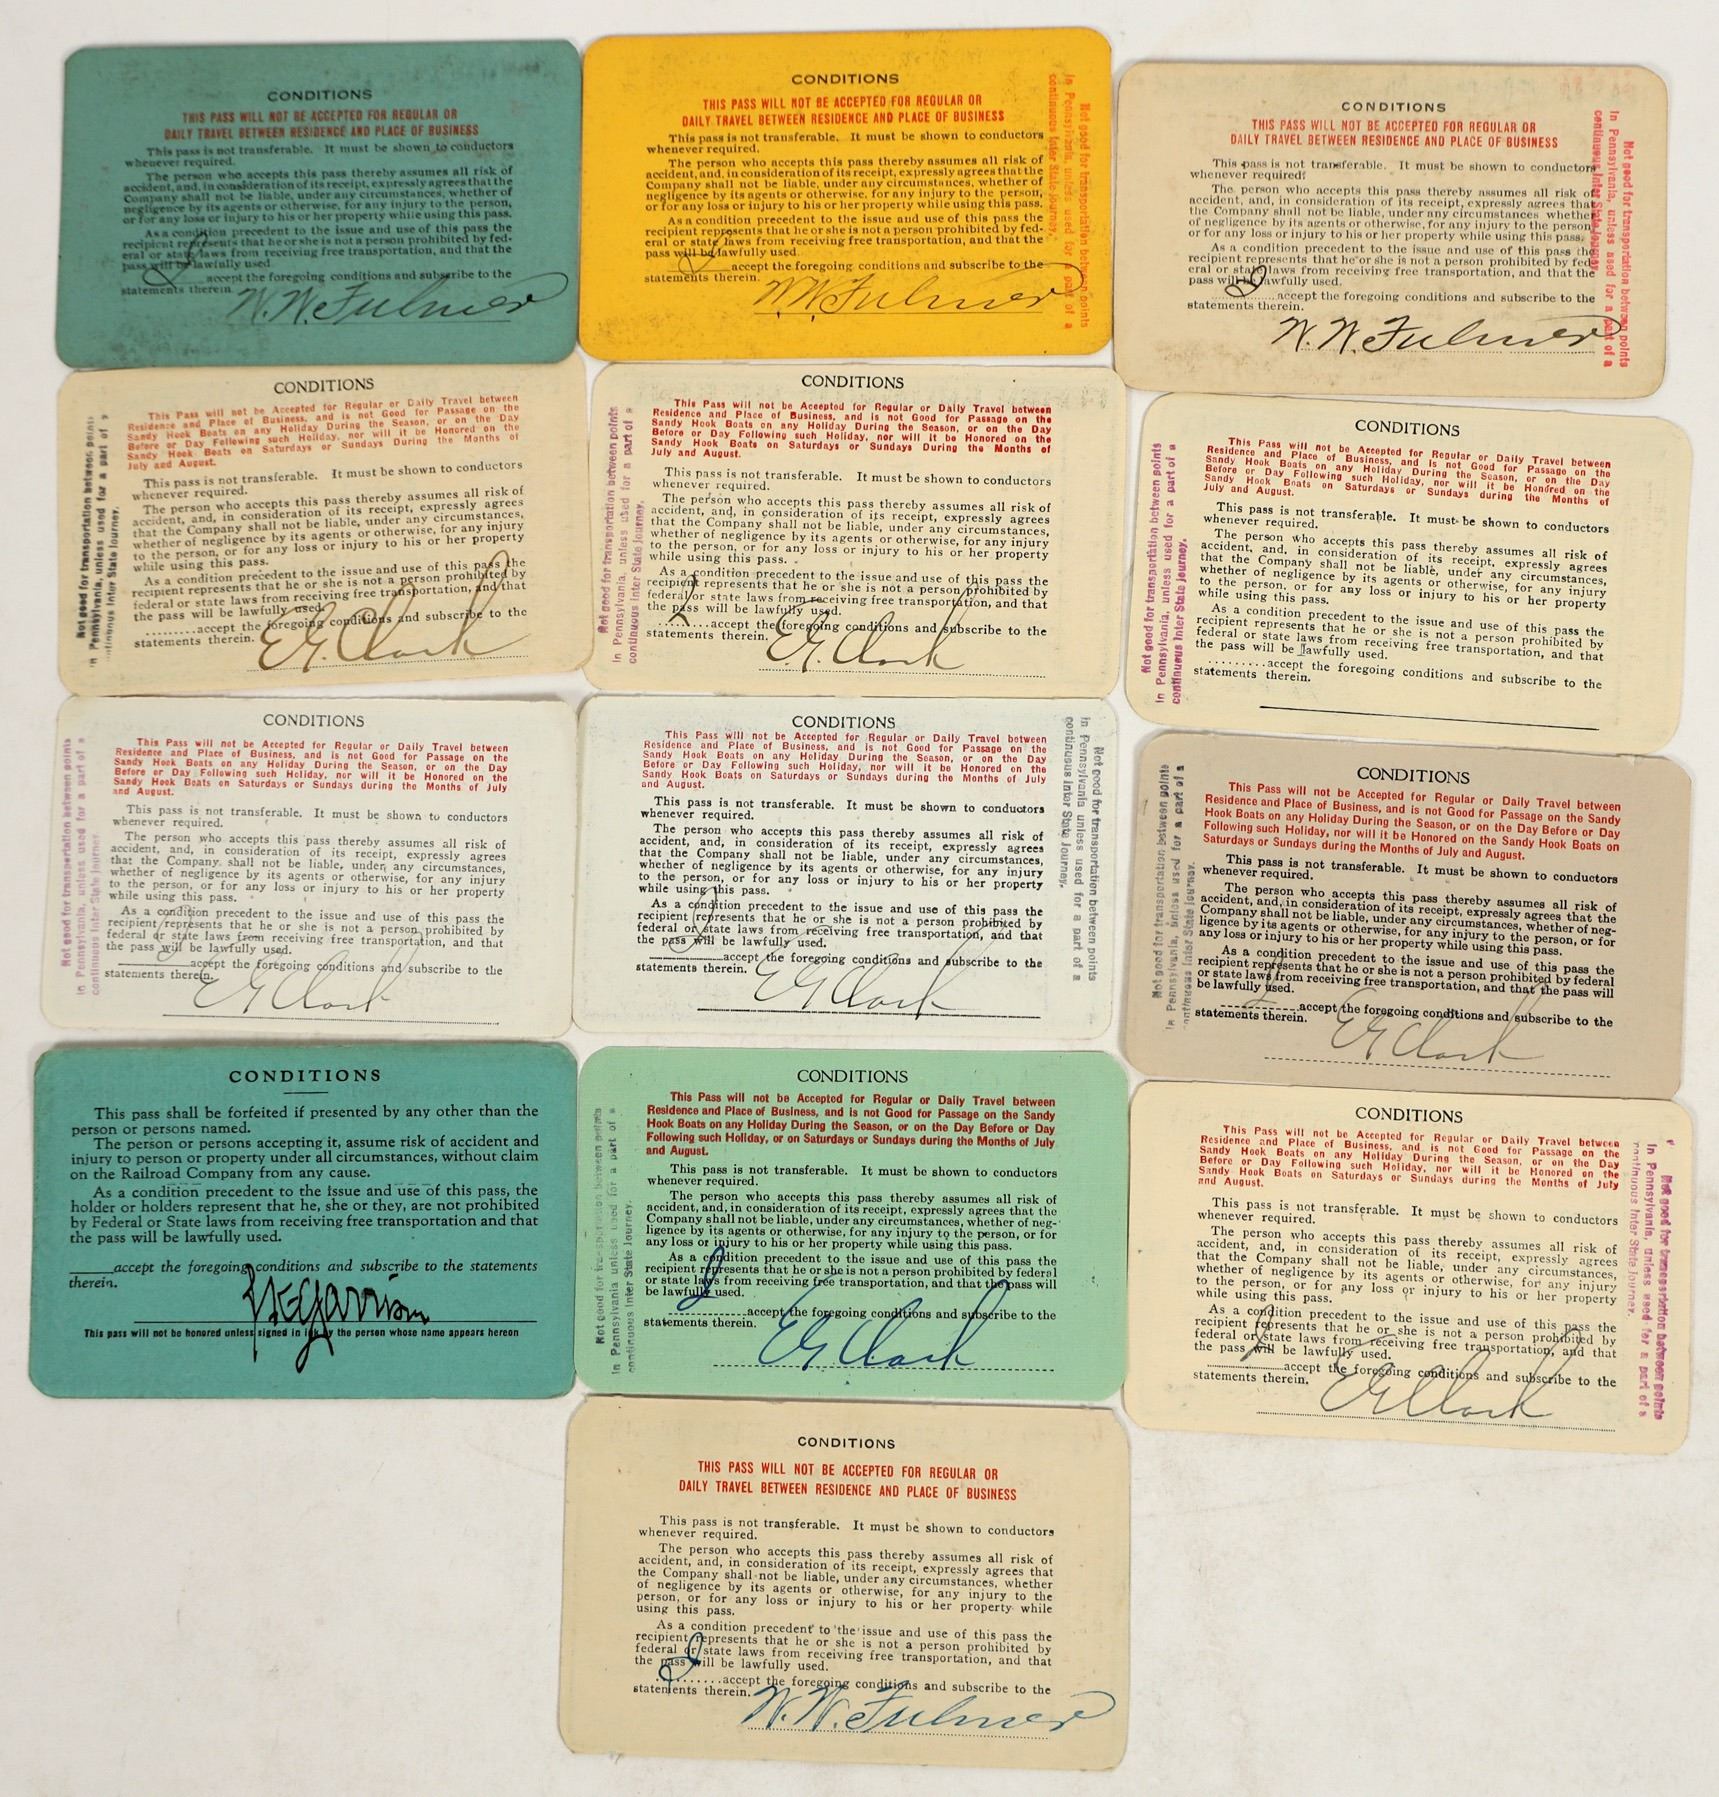 CONDITIONS
THIS PASS WILL NOT BE ACCEPTED FOR REGULAR OR
DAILY TRAVEL BETWEEN RESIDENCE AND PLACE OF BUSINESS
This pass is not transferable. It must be shown to conductors
whenever required.
The person who accepts this pass thereby assumes all risk of
accident, and, in consideration of its receipt, expressly agrees that the
Company shall not be liable, under any circumstances, whether of
negligence by its agents or otherwise, for any injury to the person,
or for any loss or injury to his or her property while using this pass.
As a condition precedent to the issue and use of this pass the
recipient represents that he or she is not a person prohibited by fed-
eral or state laws from receiving free transportation, and that the
pass will be lawfully used.
I accept the foregoing conditions and subscribe to the
statements therein.
W. W. Fulmer
CONDITIONS
THIS PASS WILL NOT BE ACCEPTED FOR REGULAR OR
DAILY TRAVEL BETWEEN RESIDENCE AND PLACE OF BUSINESS
This pass is not transferable. It must be shown to conductors
whenever required.
The person who accepts this pass thereby assumes all risk of
accident, and, in consideration of its receipt, expressly agrees that the
Company shall not be liable, under any circumstances, whether of
negligence by its agents or otherwise, for any injury to the person,
or for any loss or injury to his or her property while using this pass.
As a condition precedent to the issue and use of this pass the
recipient represents that he or she is not a person prohibited by fed-
eral or state laws from receiving free transportation, and that the
pass will be lawfully used.
I accept the foregoing conditions and subscribe to the
statements therein.
W. W. Fulmer
Not good for transportation between points
in Pennsylvania, unless used for a part of a
continuous Inter State Journey.
CONDITIONS
THIS PASS WILL NOT BE ACCEPTED FOR REGULAR OR
DAILY TRAVEL BETWEEN RESIDENCE AND PLACE OF BUSINESS
This pass is not transferable. It must be shown to conductors
whenever required.
The person who accepts this pass thereby assumes all risk of
accident, and, in consideration of its receipt, expressly agrees that
the Company shall not be liable, under any circumstances whether
of negligence by its agents or otherwise, for any injury to the person
or for any loss or injury to his or her property while using this pass.
As a condition precedent to the issue and use of this pass the
recipient represents that he or she is not a person prohibited by fed-
eral or state laws from receiving free transportation, and that the
pass will be lawfully used.
I accept the foregoing conditions and subscribe to the
statements therein.
W. W. Fulmer
Not good for transportation between points
in Pennsylvania, unless used for a part of a
continuous Inter State Journey.
CONDITIONS
This Pass will not be Accepted for Regular or Daily Travel between
Residence and Place of Business, and is not Good for Passage on the
Sandy Hook Boats on any Holiday During the Season, or on the Day
Before or Day Following such Holiday, nor will it be Honored on the
Sandy Hook Boats on Saturdays or Sundays During the Months of
July and August.
This pass is not transferable. It must be shown to conductors
whenever required.
The person who accepts this pass thereby assumes all risk of
accident, and, in consideration of its receipt, expressly agrees
that the Company shall not be liable, under any circumstances,
whether of negligence by its agents or otherwise, for any injury
to the person, or for any loss or injury to his or her property
while using this pass.
As a condition precedent to the issue and use of this pass the
recipient represents that he or she is not a person prohibited by
federal or state laws from receiving free transportation, and that
the pass will be lawfully used.
..........accept the foregoing conditions and subscribe to the
statements therein.
E. G. Clark
Not good for transportation between points
in Pennsylvania, unless used for a part of
continuous Inter State Journey.
CONDITIONS
This Pass will not be Accepted for Regular or Daily Travel between
Residence and Place of Business, and is not Good for Passage on the
Sandy Hook Boats on any Holiday During the Season, or on the Day
Before or Day Following such Holiday, nor will it be Honored on the
Sandy Hook Boats on Saturdays or Sundays During the Months of
July and August.
This pass is not transferable. It must be shown to conductors
whenever required.
The person who accepts this pass thereby assumes all risk of
accident, and, in consideration of its receipt, expressly agrees
that the Company shall not be liable, under any circumstances,
whether of negligence by its agents or otherwise, for any injury
to the person, or for any loss or injury to his or her property
while using this pass.
As a condition precedent to the issue and use of this pass the
recipient represents that he or she is not a person prohibited by
federal or state laws from receiving free transportation, and that
the pass will be lawfully used.
I accept the foregoing conditions and subscribe to the
statements therein.
E. G. Clark
Not good for transportation between points
in Pennsylvania, unless used for a part of a
continuous Inter State Journey.
CONDITIONS
This Pass will not be Accepted for Regular or Daily Travel between
Residence and Place of Business, and is not Good for Passage on the
Sandy Hook Boats on any Holiday During the Season, or on the Day
Before or Day Following such Holiday, nor will it be Honored on the
Sandy Hook Boats on Saturdays or Sundays during the Months of
July and August.
This pass is not transferable. It must be shown to conductors
whenever required.
The person who accepts this pass thereby assumes all risk of
accident, and, in consideration of its receipt, expressly agrees
that the Company shall not be liable, under any circumstances,
whether of negligence by its agents or otherwise, for any injury
to the person, or for any loss or injury to his or her property
while using this pass.
As a condition precedent to the issue and use of this pass the
recipient represents that he or she is not a person prohibited by
federal or state laws from receiving free transportation, and that
the pass will be lawfully used.
..........accept the foregoing conditions and subscribe to the
statements therein.
Not good for transportation between points
in Pennsylvania, unless used for a part of a
continuous Inter State Journey.
CONDITIONS
This Pass will not be Accepted for Regular or Daily Travel between
Residence and Place of Business, and is not Good for Passage on the
Sandy Hook Boats on any Holiday During the Season, or on the Day
Before or Day Following such Holiday, nor will it be Honored on the
Sandy Hook Boats on Saturdays or Sundays during the Months of July
and August.
This pass is not transferable. It must be shown to conductors
whenever required.
The person who accepts this pass thereby assumes all risk of
accident, and, in consideration of its receipt, expressly agrees
that the Company shall not be liable, under any circumstances,
whether of negligence by its agents or otherwise, for any injury
to the person, or for any loss or injury to his or her property
while using this pass.
As a condition precedent to the issue and use of this pass the
recipient represents that he or she is not a person prohibited by
federal or state laws from receiving free transportation, and that
the pass will be lawfully used.
I accept the foregoing conditions and subscribe to the
statements therein.
E G Clark
Not good for transportation between points
in Pennsylvania, unless used for a part of a
continuous Inter State Journey.
CONDITIONS
This Pass will not be Accepted for Regular or Daily Travel between
Residence and Place of Business, and is not Good for Passage on the
Sandy Hook Boats on any Holiday During the Season, or on the Day
Before or Day Following such Holiday, nor will it be Honored on the
Sandy Hook Boats on Saturdays or Sundays during the Months of July
and August.
This pass is not transferable. It must be shown to conductors
whenever required.
The person who accepts this pass thereby assumes all risk of
accident, and, in consideration of its receipt, expressly agrees
that the Company shall not be liable, under any circumstances,
whether of negligence by its agents or otherwise, for any injury
to the person, or for any loss or injury to his or her property
while using this pass.
As a condition precedent to the issue and use of this pass the
recipient represents that he or she is not a person prohibited by
federal or state laws from receiving free transportation, and that
the pass will be lawfully used.
I accept the foregoing conditions and subscribe to the
statements therein.
E G Clark
Not good for transportation between points
in Pennsylvania unless used for a part of a
continuous Inter State Journey.
CONDITIONS
This Pass will not be Accepted for Regular or Daily Travel between
Residence and Place of Business, and is not Good for Passage on the Sandy
Hook Boats on any Holiday During the Season, or on the Day Before or Day
Following such Holiday, nor will it be Honored on the Sandy Hook Boats on
Saturdays or Sundays during the Months of July and August.
This pass is not transferable. It must be shown to conductors
whenever required.
The person who accepts this pass thereby assumes all risk of
accident, and, in consideration of its receipt, expressly agrees that the
Company shall not be liable, under any circumstances, whether of neg-
ligence by its agents or otherwise, for any injury to the person, or for
any loss or injury to his or her property while using this pass.
As a condition precedent to the issue and use of this pass the
recipient represents that he or she is not a person prohibited by federal
or state laws from receiving free transportation, and that the pass will
be lawfully used.
I accept the foregoing conditions and subscribe to the
statements therein.
E G Clark
Not good for transportation between points
in Pennsylvania, unless used for a part of a
continuous Inter State Journey.
CONDITIONS
This pass shall be forfeited if presented by any other than the
person or persons named.
The person or persons accepting it, assume risk of accident and
injury to person or property under all circumstances, without claim
on the Railroad Company from any cause.
As a condition precedent to the issue and use of this pass, the
holder or holders represent that he, she or they, are not prohibited
by Federal or State laws from receiving free transportation and that
the pass will be lawfully used.
_____accept the foregoing conditions and subscribe to the statements
therein.
Garrison
This pass will not be honored unless signed in ink by the person whose name appears hereon
CONDITIONS
This Pass will not be Accepted for Regular or Daily Travel between
Residence and Place of Business, and is not Good for Passage on the Sandy
Hook Boats on any Holiday During the Season, or on the Day Before or Day
Following such Holiday, or on Saturdays or Sundays during the Months of July
and August.
This pass is not transferable. It must be shown to conductors
whenever required.
The person who accepts this pass thereby assumes all risk of
accident, and, in consideration of its receipt, expressly agrees that the
Company shall not be liable, under any circumstances, whether of neg-
ligence by its agents or otherwise, for any injury to the person, or for
any loss or injury to his or her property while using this pass.
As a condition precedent to the issue and use of this pass the
recipient represents that he or she is not a person prohibited by federal
or state laws from receiving free transportation, and that the pass will
be lawfully used.
I accept the foregoing conditions and subscribe to the
statements therein.
E G Clark
Not good for transportation between points
in Pennsylvania unless used for a part of a
continuous Inter State Journey.
CONDITIONS
This Pass will not be Accepted for Regular or Daily Travel between
Residence and Place of Business, and is not Good for Passage on the
Sandy Hook Boats on any Holiday During the Season, or on the Day
Before or Day Following such Holiday, nor will it be Honored on the
Sandy Hook Boats on Saturdays or Sundays during the Months of July
and August.
This pass is not transferable. It must be shown to conductors
whenever required.
The person who accepts this pass thereby assumes all risk of
accident, and, in consideration of its receipt, expressly agrees
that the Company shall not be liable, under any circumstances,
whether of negligence by its agents or otherwise, for any injury
to the person, or for any loss or injury to his or her property
while using this pass.
As a condition precedent to the issue and use of this pass the
recipient represents that he or she is not a person prohibited by
federal or state laws from receiving free transportation, and that
the pass will be lawfully used.
I accept the foregoing conditions and subscribe to the
statements therein.
E G Clark
Not good for transportation between points
in Pennsylvania, unless used for a part of a
continuous Inter State Journey.
CONDITIONS
THIS PASS WILL NOT BE ACCEPTED FOR REGULAR OR
DAILY TRAVEL BETWEEN RESIDENCE AND PLACE OF BUSINESS
This pass is not transferable. It must be shown to conductors
whenever required.
The person who accepts this pass thereby assumes all risk of
accident, and, in consideration of its receipt, expressly agrees that
the Company shall not be liable, under any circumstances, whether
of negligence by its agents or otherwise, for any injury to the
person, or for any loss or injury to his or her property while
using this pass.
As a condition precedent to the issue and use of this pass the
recipient represents that he or she is not a person prohibited by
federal or state laws from receiving free transportation, and that
the pass will be lawfully used.
I accept the foregoing conditions and subscribe to the
statements therein.
W. W. Fulmer